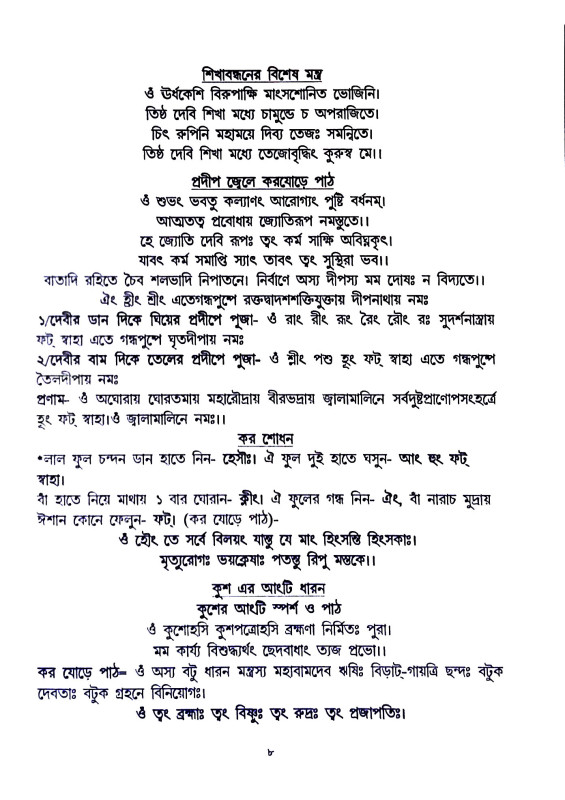 শিখাবন্ধনের বিশেষ মন্ত্র
ওঁ ঊর্ধকেশি বিরুপাক্ষি মাংসশোনিত ভোজিনি।
তিষ্ঠ দেবি শিখা মধ্যে চামুন্ডে চ অপরাজিতে।
চিৎ রুপিনি মহাময়ে দিব্য তেজঃ সমন্বিতে।
তিষ্ঠ দেবি শিখা মধ্যে তেজোবৃদ্ধিং কুরুস্ব মে।।
প্রদীপ জ্বেলে করযোড়ে পাঠ
ওঁ শুভং ভবতু কল্যাণং আরোগ্যং পুষ্টি বর্ধনম্।
আত্মতত্ব প্রবোধায় জ্যোতিরূপ নমস্তুতে।।
হে জ্যোতি দেবি রূপঃ ত্বং কর্ম সাক্ষি অবিঘ্নকৃৎ।
যাবৎ কর্ম সমাপ্তি স্যাৎ তাবৎ ত্বং সুস্থিরা ভব।।
বাতাদি রহিতে চৈব শলভাদি নিপাতনে। নির্বাণে অস্য দীপস্য মম দোষঃ ন বিদ্যতে।।
ঐং হ্রীং শ্রীং এতেগন্ধপুষ্পে রক্তদ্বাদশশক্তিযুক্তায় দীপনাথায় নমঃ
১/দেবীর ডান দিকে ঘিয়ের প্রদীপে পূজা- ওঁ রাং রীং রূং রৈং রৌং রঃ সুদর্শনাস্ত্রায়
ফট্ স্বাহা এতে গন্ধপুষ্পে ঘৃতদীপায় নমঃ
২/দেবীর বাম দিকে তেলের প্রদীপে পূজা- ওঁ শ্লীং পশু হূং ফট্ স্বাহা এতে গন্ধপুষ্পে
তৈলদীপায় নমঃ
প্রণাম- ওঁ অঘোরায় ঘোরতমায় মহারৌদ্রায় বীরভদ্রায় জ্বালামালিনে সর্বদুষ্টপ্রাণোপসংহর্ত্রে
হূং ফট্ স্বাহা।ওঁ জ্বালামালিনে নমঃ।।
কর শোধন
*লাল ফুল চন্দন ডান হাতে নিন- হেসৌঃ। ঐ ফুল দুই হাতে ঘসুন- আং হুং ফট্
স্বাহা।
বাঁ হাতে নিয়ে মাথায় ১ বার ঘোরান- ক্লীং। ঐ ফুলের গন্ধ নিন- ঐং, বাঁ নারাচ মুদ্রায়
ঈশান কোনে ফেলুন- ফট্। (কর যোড়ে পাঠ)-
ওঁ হৌং তে সর্বে বিলয়ং যান্তু যে মাং হিংসন্তি হিংসকাঃ।
মৃত্যুরোগঃ ভয়ক্লেষাঃ পতন্তু রিপু মস্তকে।।
কুশ এর আংটি ধারন
কুশের আংটি স্পর্শ ও পাঠ
ওঁ কুশোহসি কুশপত্রোহসি ব্রহ্মণা নির্মিতঃ পুরা।
মম কার্য্য বিশুদ্ধ্যর্থং ছেদবাধাং ত্যজ প্রভো।।
কর যোড়ে পাঠ= ওঁ অস্য বটু ধারন মন্ত্রস্য মহাবামদেব ঋষিঃ বিড়াট্-গায়ত্রি ছন্দঃ বটুক
দেবতাঃ বটুক গ্রহনে বিনিয়োগঃ।
ওঁ ত্বং ব্রহ্মাঃ ত্বং বিষ্ণুঃ ত্বং রুদ্রঃ ত্বং প্রজাপতিঃ।
৮